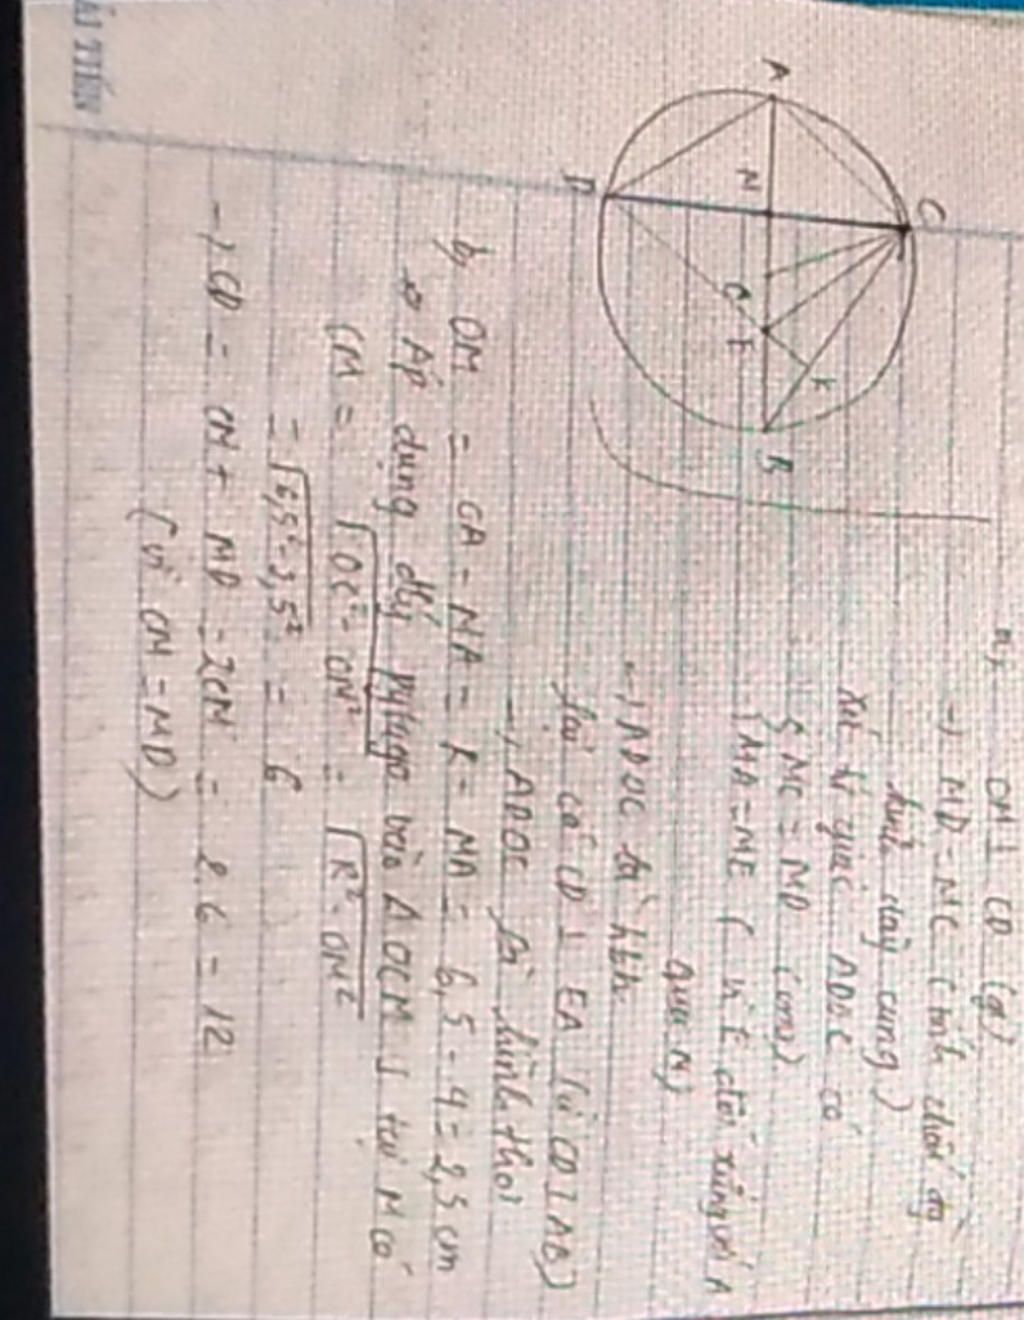 ẢI TIẾN
A
C
N
D
O
E
K
B
a, OM ⊥ CD (gt)
→ MD = MC (tính chất đg
kính dây cung)
Xét tứ giác ADEC có
{ MC = MD (cmt)
{ MA = ME ( vì E đối xứng với A
qua M)
→ ADOC là hbh
lại có CD ⊥ EA (vì CD ⊥ AB)
→ ADOC là hình thoi
b, OM = OA - MA = R - MA = 6,5 - 4 = 2,5 cm
Áp dụng đlý pytago vào Δ OCM ⊥ tại M có
CM = √OC² - OM² = √R² - OM²
= √6,5² - 2,5² = 6
→ CD = CM + MD = 2CM = 2.6 = 12
( vì CM = MD )